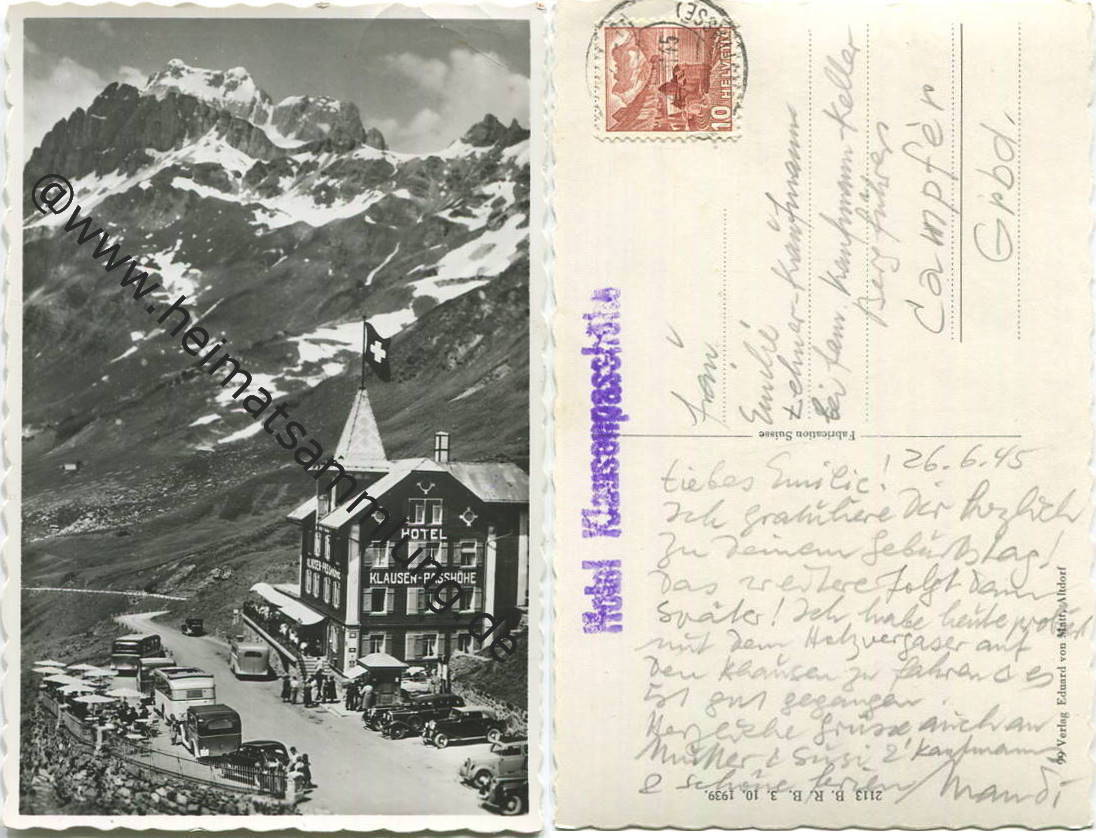 HOTEL
KLAUSEN-PASSHÖHE
KLAUSEN-PASSHÖHE
@www.heimatsammlung.de
10 HELVETIA
Hotel Klausenpasshöhe
Frau
Emilie
Lehnar-Kaufmann
bei Fam. Kaufmann-Keller
Bergführer
Campfèr
Grbd.
Fabrication Suisse
26.6.45
Liebes Emilie!
Ich gratuliere Dir herzlich
zu Deinem Geburtstag!
Das weitere folgt dann
später! Ich habe heute probiert
mit dem Holzvergaser auf
den Klausen zu fahren & es
ist gut gegangen.
Herzliche Grüsse auch an
Mutter & Susi & Kaufmanns
& schöne Ferien
Mandi
99 Verlag Eduard von Matt, Altdorf
2113 B. R. B. 3. 10. 1939.